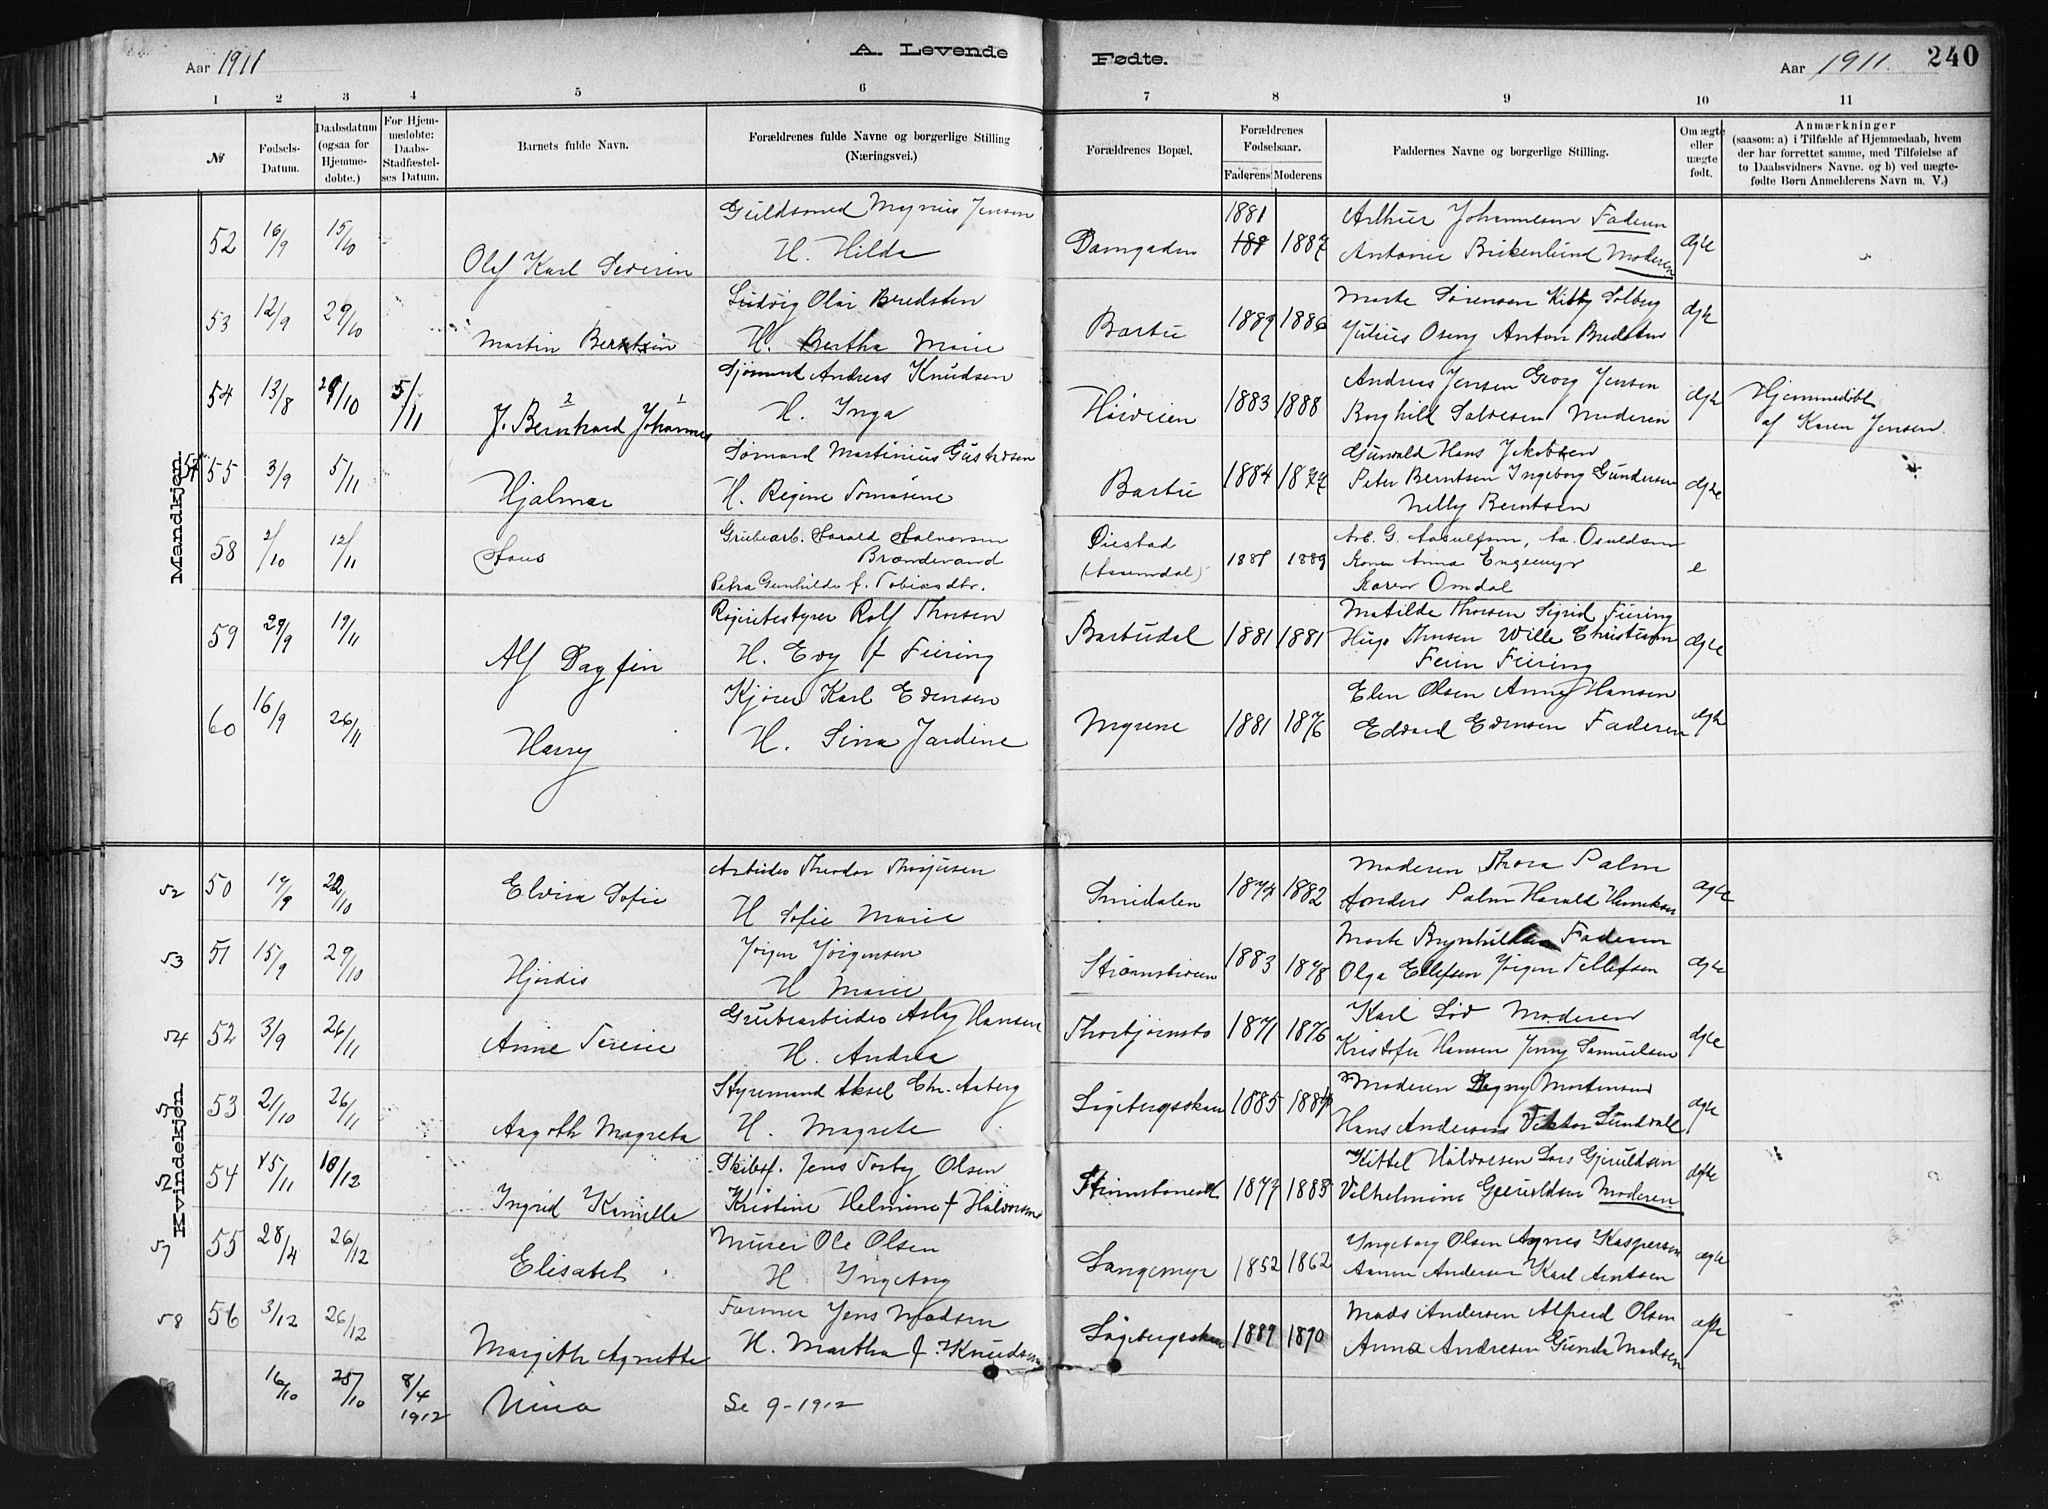 Aar 1911
A. Levende Fødte.
Aar 1911. 240
1 2 3 4 5 6 7 8 9 10 11
№
Fødsels-Datum.
Daabsdatum (ogsaa for Hjemmedøbte.)
For Hjemmedøbte: Daabs-Stadfæstelses Datum.
Barnets fulde Navn.
Forældrenes fulde Navne og borgerlige Stilling (Næringsvei.)
Forældrenes Bopæl.
Forældrenes Fødselsaar.
Faderens Moderens
Faddernes Navne og borgerlige Stilling.
Om ægte eller uægte født.
Anmærkninger
(saasom: a) i Tilfælde af Hjemmedaab, hvem der har forrettet samme, med Tilføielse af to Daabsvidners Navne. og b) ved uægtefødte Børn Anmelderens Navn m. V.)
Mandkjøn.
52 16/9 15/10 Olaf Karl Severin
Guldsmed Mynius Jensen
H. Hilda
Damgaden 1881 1887
Arthur Johannesen Faderen
Antonie Birkenlund Moderen
ægte
53 12/9 29/10 Martin Berntsin
Ludvig Olai Bredsten
H. Bertha Marie
Barbu 1889 1886
Marte Sørensen Kitty Solberg
Julius Oseng Anton Bredsten
ægte
54 13/8 29/10 5/11 J. Bernhard Johannes
2 1
Sjømand Andreas Knudsen
H. Inga
Høiveien 1883 1888
Andreas Jensen Georg Jensen
Borghild Salvesen Moderen
ægte
Hjemmedøbt
af Karen Jensen.
57 55 3/9 5/11 Hjalmar
Sømand Martinius Gustavsen
H. Regine Tomasine
Barbu 1884 1877
Gunvald Hans Jakobsen
Peter Berntsen Ingeborg Gundersen
Nelly Berntsen
ægte
58 2/10 12/11 Hans
Grubearb. Harald Halvorsen
Brændevand
Petra Gunhilde f. Tobiasdtr.
Øiestad
1889
Arb. G. Aasulfsen, Aa. Osuldsen
Kone Anna Engemyr
Karen Omdal
e
59 29/9 19/11 Alf Dagfin
Rolf Thorsen
H. Evy f Fiering
Barbudal 1881 1881
Matilde Thorsen Sigrid Fiering
Hugo Thorsen Wille Christiansen
Fiering
ægte
60 16/9 26/11 Harry
Kjører Karl Evensen
H. Sina Jardine
Myrene 1881 1876
Elen Olsen Anny Hansen
Edvard Evensen Faderen
ægte
Kvindekjøn.
52 50 17/9 22/10 Elvira Sofie
Arbeider Theodor
H Sofie Marie
Smidalen 1874 1882
Moderen Thora Palm
Anders Palm Harald Henriksen
ægte
53 51 15/9 29/10 Hjørdis
Jørgen Jørgensen
H Marie
1883 1878
Marte Faderen
Olga Ellefsen Jørgen Tellefsen
ægte
54 52 3/9 26/11 Anne Teresie
Grubearbeider Asby Hansen
H. Andrea
Thorbjørnsbo 1871 1876
Karl Løv Moderen
Kristofer Hansen Jenny Samuelsen
ægte
53 21/10 26/11 Aagoth Magreta
Styrmand Aksel Chr. Aaberg
H. Magrete
1885
Moderen Mortensen
Hans Andersen Viktor Lundvall
ægte
54 15/11 10/12 Ingrid Kamilla
Jens Torby Olsen
Kristine Helmine f Halvorsen
1877
Kittel Halvorsen Lars Gjeruldsen
Vilhelmine Gjeruldsen Moderen
ægte
57 55 28/4 26/12 Elisabet
Murer Ole Olsen
H. Ingeborg
Langemyr 1852 1862
Ingeborg Olsen Agnes Kaspersen
Andersen Karl Arntsen
ægte
58 56 3/12 26/12 Margith Agnette
Former Jens Madsen
H. Martha f. Knudsen
1889 1890
Mads Andersen Alfred Olsen
Anna Andresen Gunda Madsen
16/10 28/10 8/4 1912 Nina
Se 9-1912